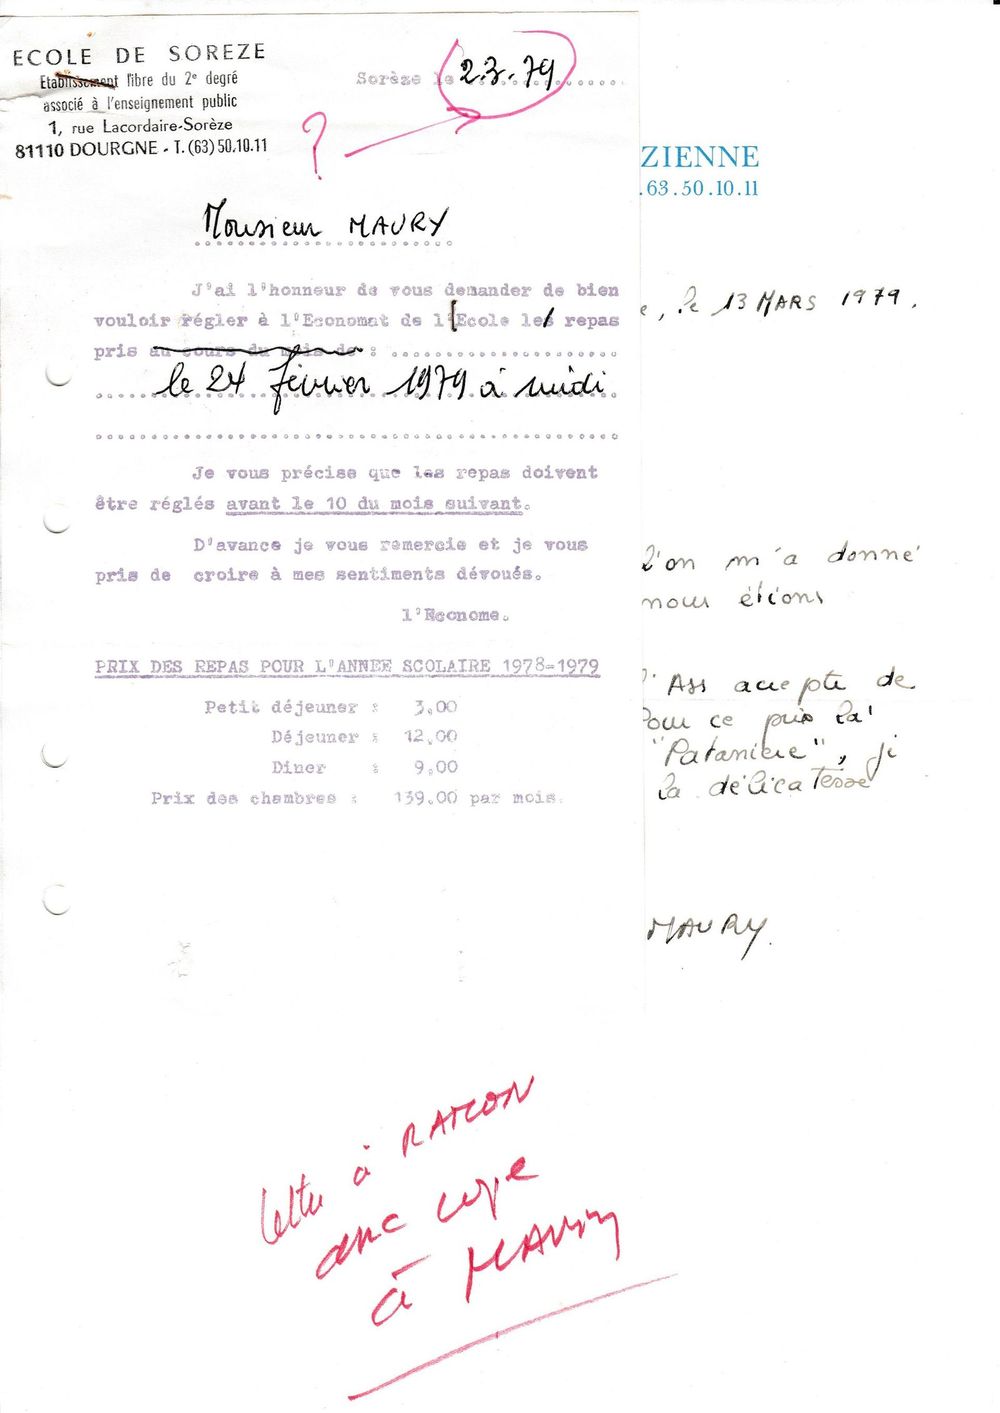 ECOLE DE SOREZE
Etablissement libre du 2e degré
associé à l'enseignement public
1, rue Lacordaire-Sorèze
81110 DOURGNE - T. (63) 50.10.11
Sorèze le 2.3.79
?
Monsieur MAURY
J'ai l'honneur de vous demander de bien
vouloir régler à l'Economat de l'Ecole les repas
pris au cours du mois de :
le 24 février 1979 à midi
Je vous précise que les repas doivent
être réglés avant le 10 du mois suivant.
D'avance je vous remercie et je vous
pris de croire à mes sentiments dévoués.
l'Econome.
PRIX DES REPAS POUR L'ANNEE SCOLAIRE 1978-1979
Petit déjeuner : 3,00
Déjeuner : 12,00
Diner : 9,00
Prix des chambres : 139.00 par mois.
ZIENNE
.63.50.10.11
e, le 13 MARS 1979.
l'on m'a donné
nous étions
l'Ass accepte de
Pour ce prix là
, je
la délicatesse
MAURY
lettre à
avec copie
à MAURY